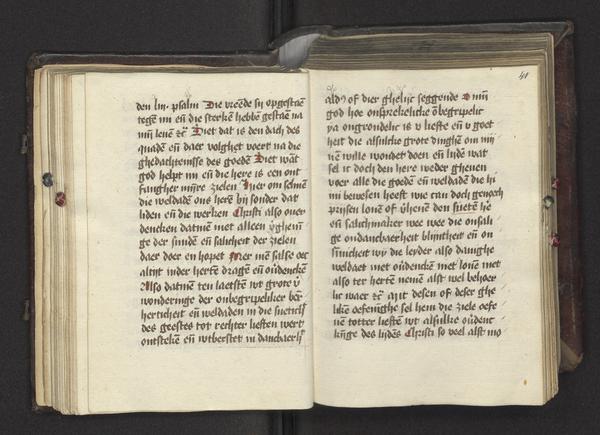 den liij. psalm Die vreēde sij opgestaē
tegē mi eñ die sterkē hebbē gestaē na
mij leuē etc̄ Siet dat is den dach des
quadē eñ daer volghet voert na die
ghedachtenisse des goedē Siet wāt
god helpt mi eñ die here is een ont
fangher mijnre zielen Hier om selmē
die weldadē ons herē bij sonder dat
liden eñ die werken Christi also ouer
dencken datmē met alleen
ge der sundē eñ salicheit der zielen
daer doer en hopet Mer mē salse oec
altijt inder hertē dragē eñ ouerdenckē
Also datmē ten laetstē wt grote
wonderinge der onbegripeliker
herticheit eñ weldaden in die sueticheit
des geestes tot rechter lieften wert
ontsteken eñ wtberstet in dancbaerh
41
aldus of dier ghelijc seggende O mijn
god hoe onsprekelicke ōbegripelic
ya ongrondelic is v liefte eñ v goet
heit die alsulcke grote dinghē om mij
nē wille woudet doen eñ lidē wat
sel ic doch den here weder gheuen
voer alle die goedē eñ weldadē die hi
mi bewesen heeft wie can doch genoech
prijsen louē of den suetē he
eñ salichmaker wee wee die onsali
ge ondancbaerheit blijntheit eñ on
sinnicheit wij die leyder also danighe
weldaet met ouerdēckē met louē met
also ter hertē nemē alst wel behoer
lic waer etc̄ Mit desen of deser ghe
likē oefeninghe sel hem die ziele oefe
nē totter liefstē wt alsulke ouerdenc
kinge des lidēs Christi so veel alst mo